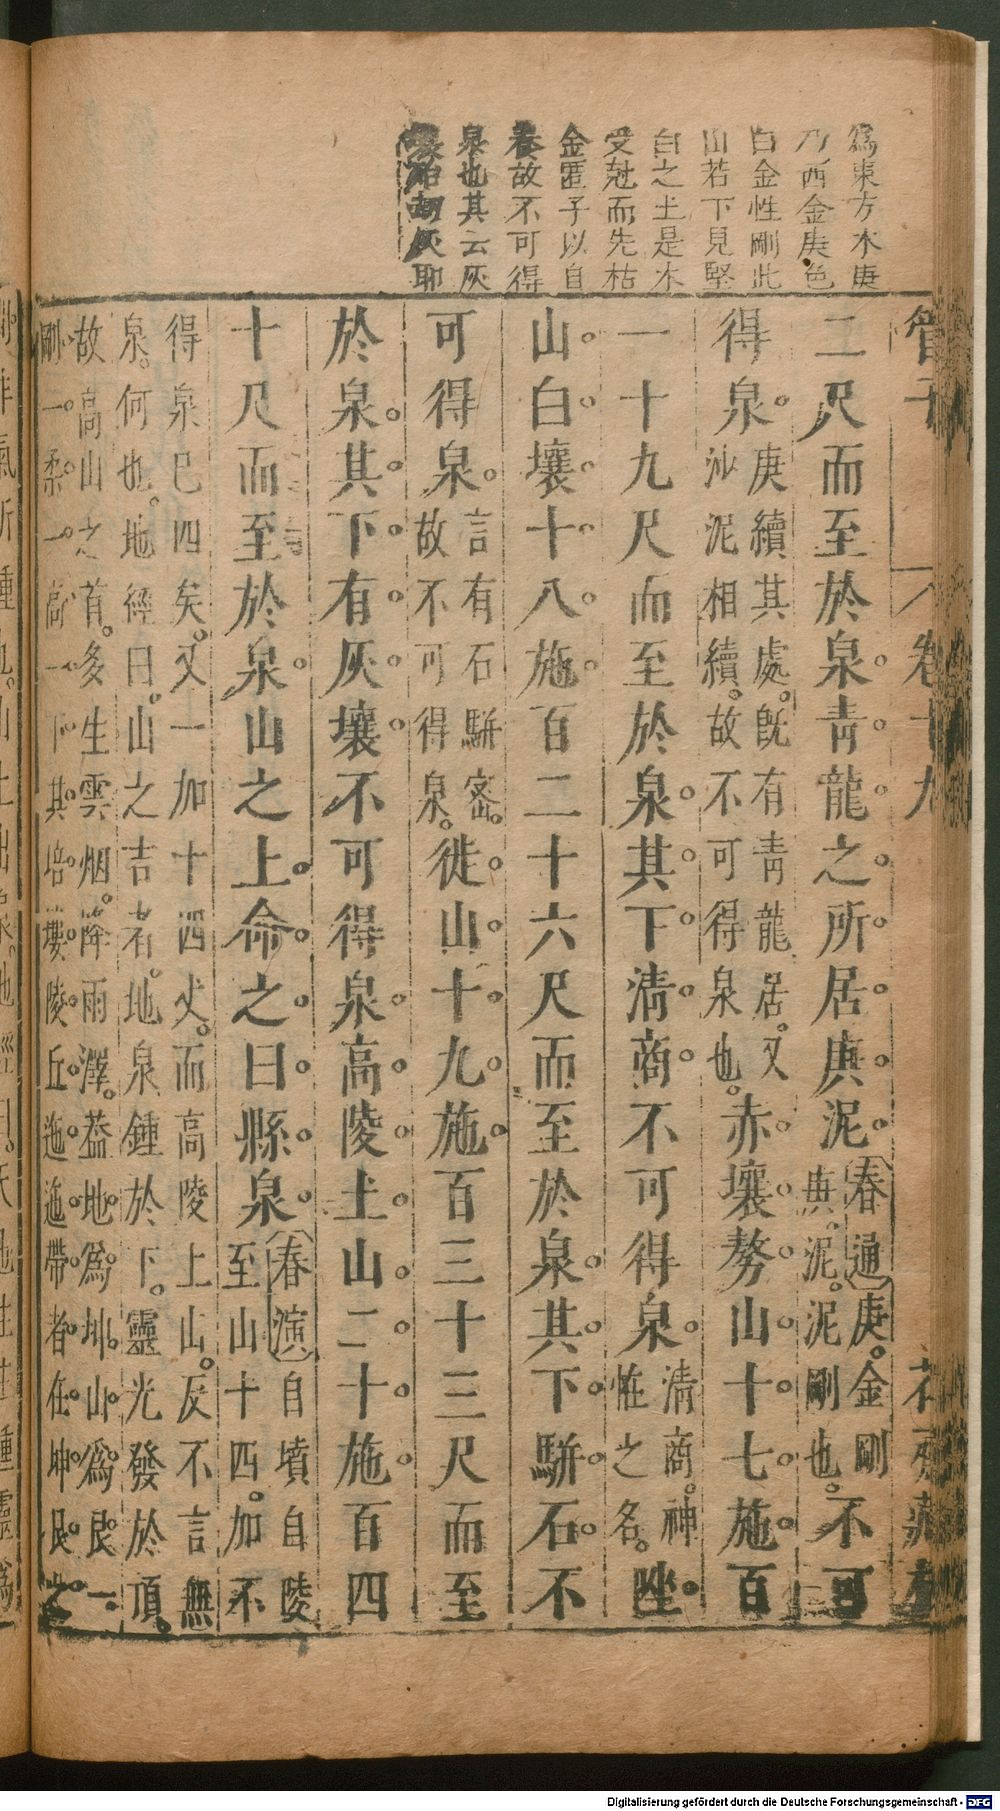 為東方木庚
乃西金庚色
白金性剛此
山若下見堅
白之土是木
受尅而先枯
金匱子以自
養故不可得
泉也其云灰
灰耶
管子 卷十九
二尺而至於泉青龍之所居庚泥春通庚金剛
庚泥泥剛也不可
得泉庚續其處既有青龍居又
沙泥相續故不可得泉也赤壤勢山十七施百
一十九尺而至於泉其下清商不可得泉清商神
怪之名唑
山白壤十八施百二十六尺而至於泉其下駢石不
可得泉言有石駢密
故不可得泉徙山十九施百三十三尺而至
於泉其下有灰壤不可得泉高陵土山二十施百四
十尺而至於泉山之上命之曰縣泉春演自墳自陵
至山十四加不
得泉已四矣又一加十四丈而高陵上山反不言無
泉何也地經曰山之吉者地泉鍾於下靈光發於頂
故高山之首多生雲烟降雨澤葢地為坤山為艮一
剛一柔一高一下其培塿陵丘迤迤帶者在坤艮之
Digitalisierung gefördert durch die Deutsche Forschungsgemeinschaft - DFG